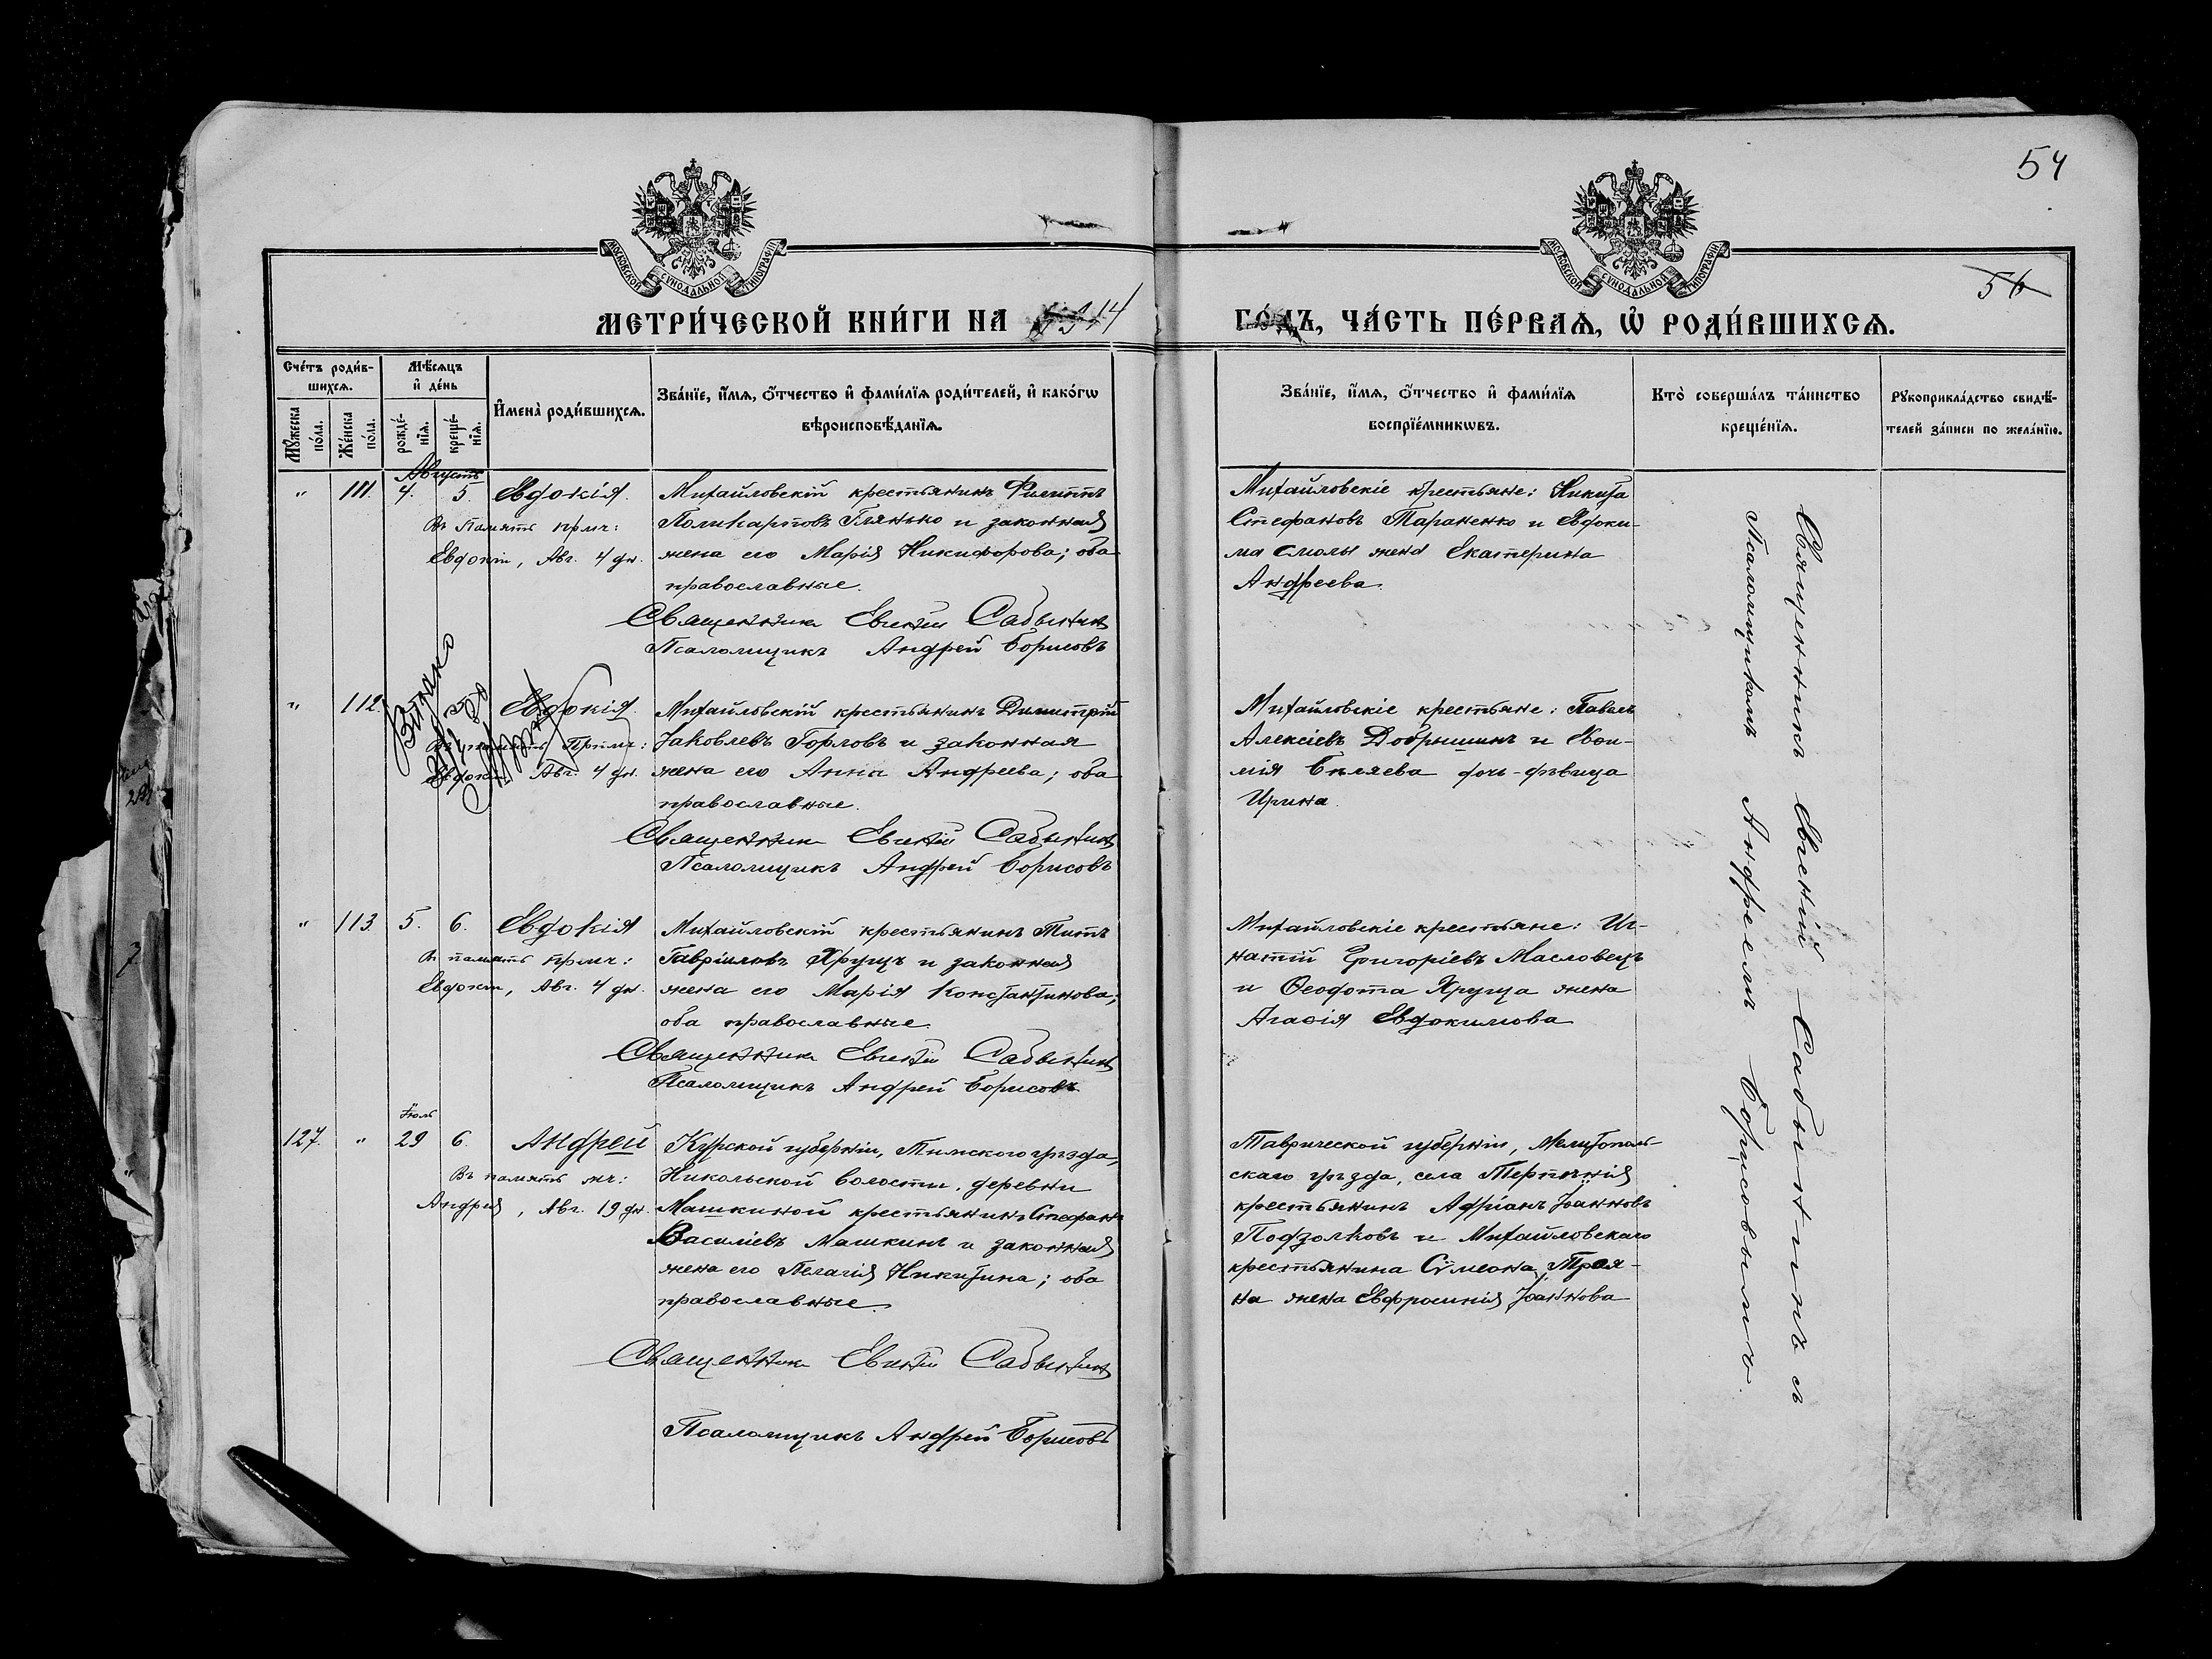 54
56
МОСКОВСКОЙ СѴНОДАЛЬНОЙ ТИПОГРАФІИ
МОСКОВСКОЙ СѴНОДАЛЬНОЙ ТИПОГРАФІИ
МЕТРИ́ЧЕСКОЙ КНИ́ГИ НА 1914 ГО́ДЪ, ЧА́СТЬ ПЕ́РВАѦ, Ѡ҆ РОДИ́ВШИХСѦ.
Сче́тъ роди́в-
шихсѧ.
Мꙋ́жеска
по́ла.
Же́нска
по́ла.
Мѣ́сѧцъ
и҆ де́нь
рожде́-
нїѧ.
креще́-
нїѧ.
И҆мена̀ роди́вшихсѧ.
Зва́нїе, и҆́мѧ, ѻ҆́тчество и҆ фами́лїѧ роди́телей, и҆ како́гѡ
вѣроисповѣ́данїѧ.
Зва́нїе, и҆́мѧ, ѻ҆́тчество и҆ фами́лїѧ
воспрїе́мникѡвъ.
Кто̀ соверша́лъ та́инство
креще́нїѧ.
Рꙋкоприкла́дство свидѣ́-
телей за́писи по жела́нїю.
Августъ
" 111. 4. 5. Евдокія.
Въ память прмч:
Евдокіи, Авг. 4 дн.
Михайловскій крестьянинъ Филиппъ
Поликарповъ Глянько и законная
жена его Марія Никифорова; оба
православные.
Священникъ Евгеній Сабынинъ
Псаломщикъ Андрей Борисовъ
Михайловскіе крестьяне: Никита
Стефановъ Тараненко и Евдоки-
ма Смолы жена Екатерина
Андреева.
" 112. Евдокія.
Въ память Прпмч:
Евдокіи Авг. 4 дн.
Михайловскій крестьянинъ Димитрій
Іаковлевъ Горловъ и законная
жена его Анна Андреева; оба
православные.
Священникъ Евгеній Сабынинъ
Псаломщикъ Андрей Борисовъ
Михайловскіе крестьяне: Павелъ
Алексіевъ Добрышинъ и Евѳи-
мія Бѣляева дочь-дѣвица
Ирина.
" 113. 5. 6. Евдокія
Въ память прмч:
Евдокіи, Авг. 4 дн.
Михайловскій крестьянинъ Титъ
Гавріиловъ Хрущъ и законная
жена его Марія Константинова;
оба православные.
Священникъ Евгеній Сабынинъ
Псаломщикъ Андрей Борисовъ
Михайловскіе крестьяне: Иг-
натій Григоріевъ Масловецъ
и Ѳеодота Хруща жена
Агаѳія Евдокимова
Іюль
127. " 29 6. Андрей
Въ память мч:
Андрея, Авг. 19 дн.
Курской губерніи, Тимского уѣзда,
Никольской волости, деревни
Машкиной крестьянинъ Стефанъ
Василіевъ Машкинъ и законная
жена его Пелагія Никитина; оба
православные.
Священникъ Евгеній Сабынинъ
Псаломщикъ Андрей Борисовъ
Таврической губерніи, Мелитополь-
скаго уѣзда, села Терпѣнія
крестьянинъ Адріанъ Іоанновъ
Подзолковъ и Михайловскаго
крестьянина Сѷмеона Троя-
на жена Евфросинія Іоаннова
Священникъ Евгеній Сабынинъ съ
Псаломщикомъ Андреемъ Борисовымъ.